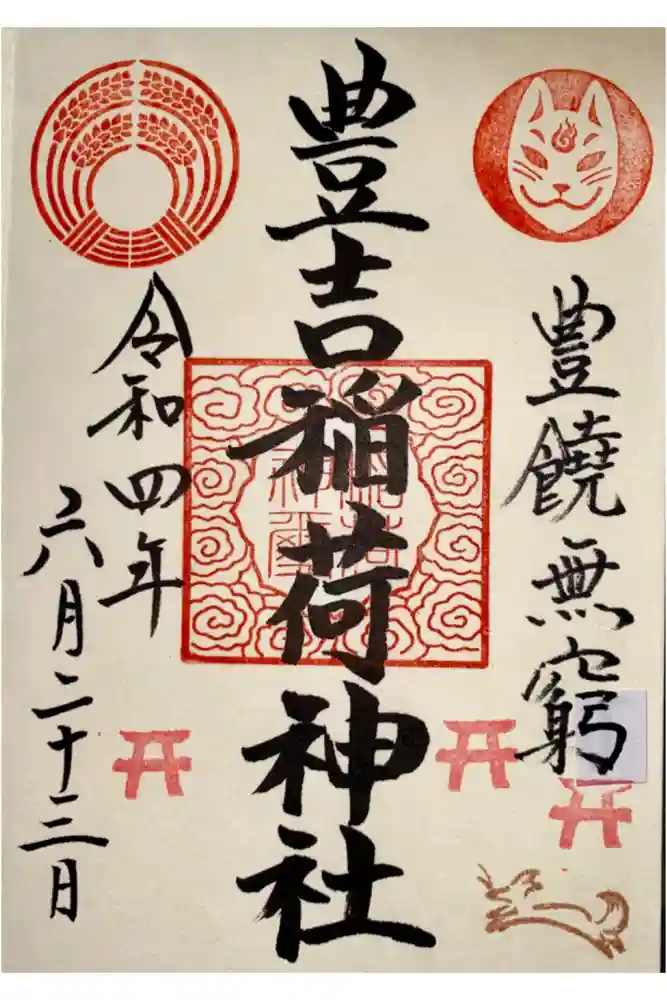 豊饒無窮
豊吉稲荷神社
令和四年
六月二十三日